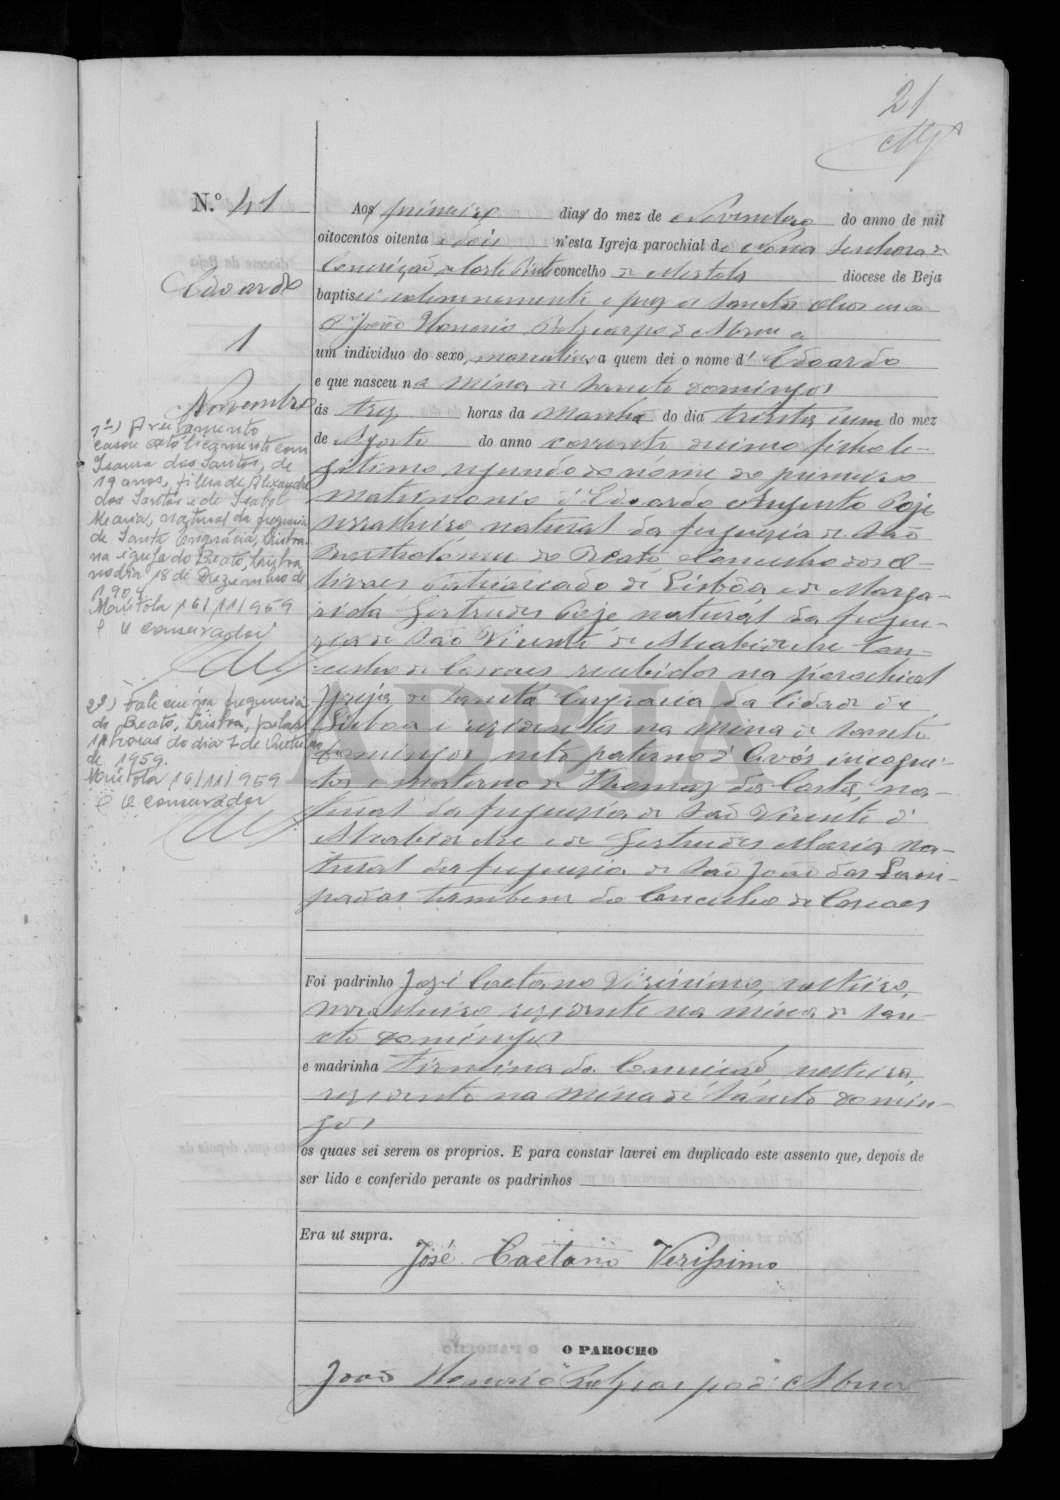 21
N.º 41
Eduardo
1
Novembro
Aos primeiro dias do mez de Novembro do anno de mil
oitocentos oitenta e dois n'esta Igreja parochial de Nossa Senhora da
Conceição concelho de Mertola diocese de Beja
baptisei solemnemente e puz os Sanctos Oleos
João Honorio Polycarpo d'Abreu
um individuo do sexo masculino a quem dei o nome d' Eduardo
e que nasceu na Mina de Sancto Domingos
ás tres horas da manhã do dia trinta e um do mez
de Agosto do anno corrente filho le-
gitimo segundo do nome do primeiro
matrimonio d'Eduardo Augusto
serralheiro natural da freguezia de São
Bartholomeu do Beato Concelho dos O-
livaes Patriarcado de Lisbôa e de Marga-
rida Gertrudes natural da fregue-
zia de São Vicente de Alcabideche Con-
celho de Cascaes recebidos na parochial
Igreja de Sancta Engracia da Cidade de
Lisboa e residentes na Mina de Sancto
Domingos neto paterno d'avós incogni-
tos e materno de Thomaz da Costa, na-
tural da freguesia de São Vicente d'
Alcabideche e de Gertrudes Maria na-
tural da freguezia de São João das Lam-
padas tambem do Concelho de Cascaes
Foi padrinho José Caetano Verissimo, solteiro,
residente na mina de San-
cto Domingos
e madrinha Firmina da Conceição solteira,
residente na Mina de Sancto Domin-
gos
os quaes sei serem os proprios. E para constar lavrei em duplicado este assento que, depois de
ser lido e conferido perante os padrinhos
Era ut supra.
José Caetano Verissimo
O PAROCHO
João Honorio Polycarpo d'Abreu
1º) Averbamento
Casou catolicamente com
Isaura dos Santos, de
19 anos, filha de Alexandre
dos Santos e de Isabel
Maria, natural da freguesia
de Santa Engrácia, Lisboa,
na igreja do Beato, Lisboa,
no dia 18 de Dezembro de
1904
Mértola 16/11/959
O conservador
2º) Faleceu na freguesia
do Beato, Lisboa, pelas
horas do dia 7 de Outubro
de 1959.
Mértola 16/11/959
O conservador
ADBJA